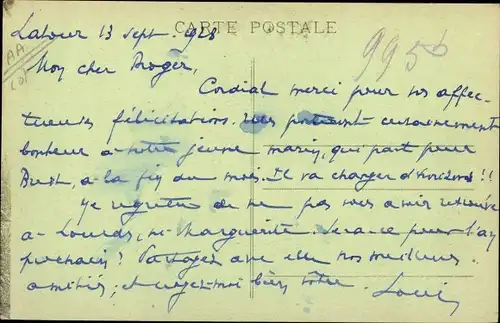 CARTE POSTALE
Latour 13 sept. 1928
995
AA
Mon cher Roger,
Cordial merci pour vos affec-
tueuses félicitations. Elles porteront certainement
bonheur à notre jeune marin, qui part pour
Brest, à la fin du mois. Il va changer d'horizons !!
Je regrette de ne pas vous avoir retrouvé
à Lourdes, ni Marguerite. Sera-ce pour l'an
prochain ? Partagez avec elle nos meilleures
amitiés, et croyez-moi bien vôtre.
Louis